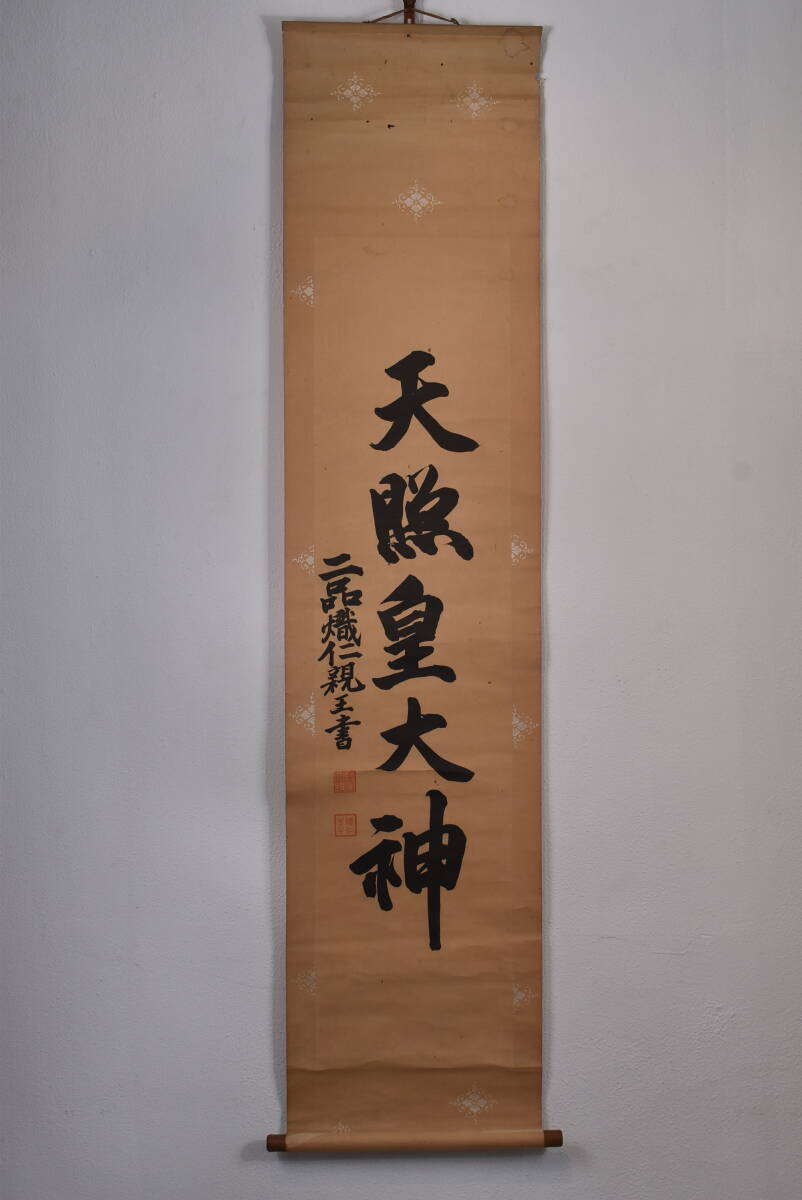 天照皇大神
二品熾仁親王書